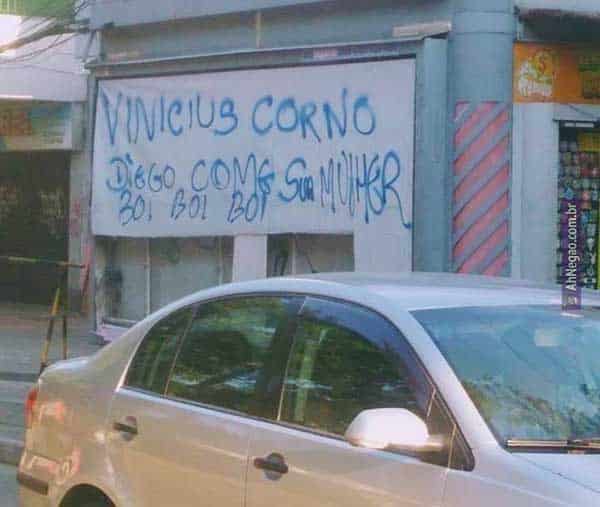 VINICIUS CORNO
DIEGO COME SUA MULHER
BOI BOI BOI
AhNegao.com.br